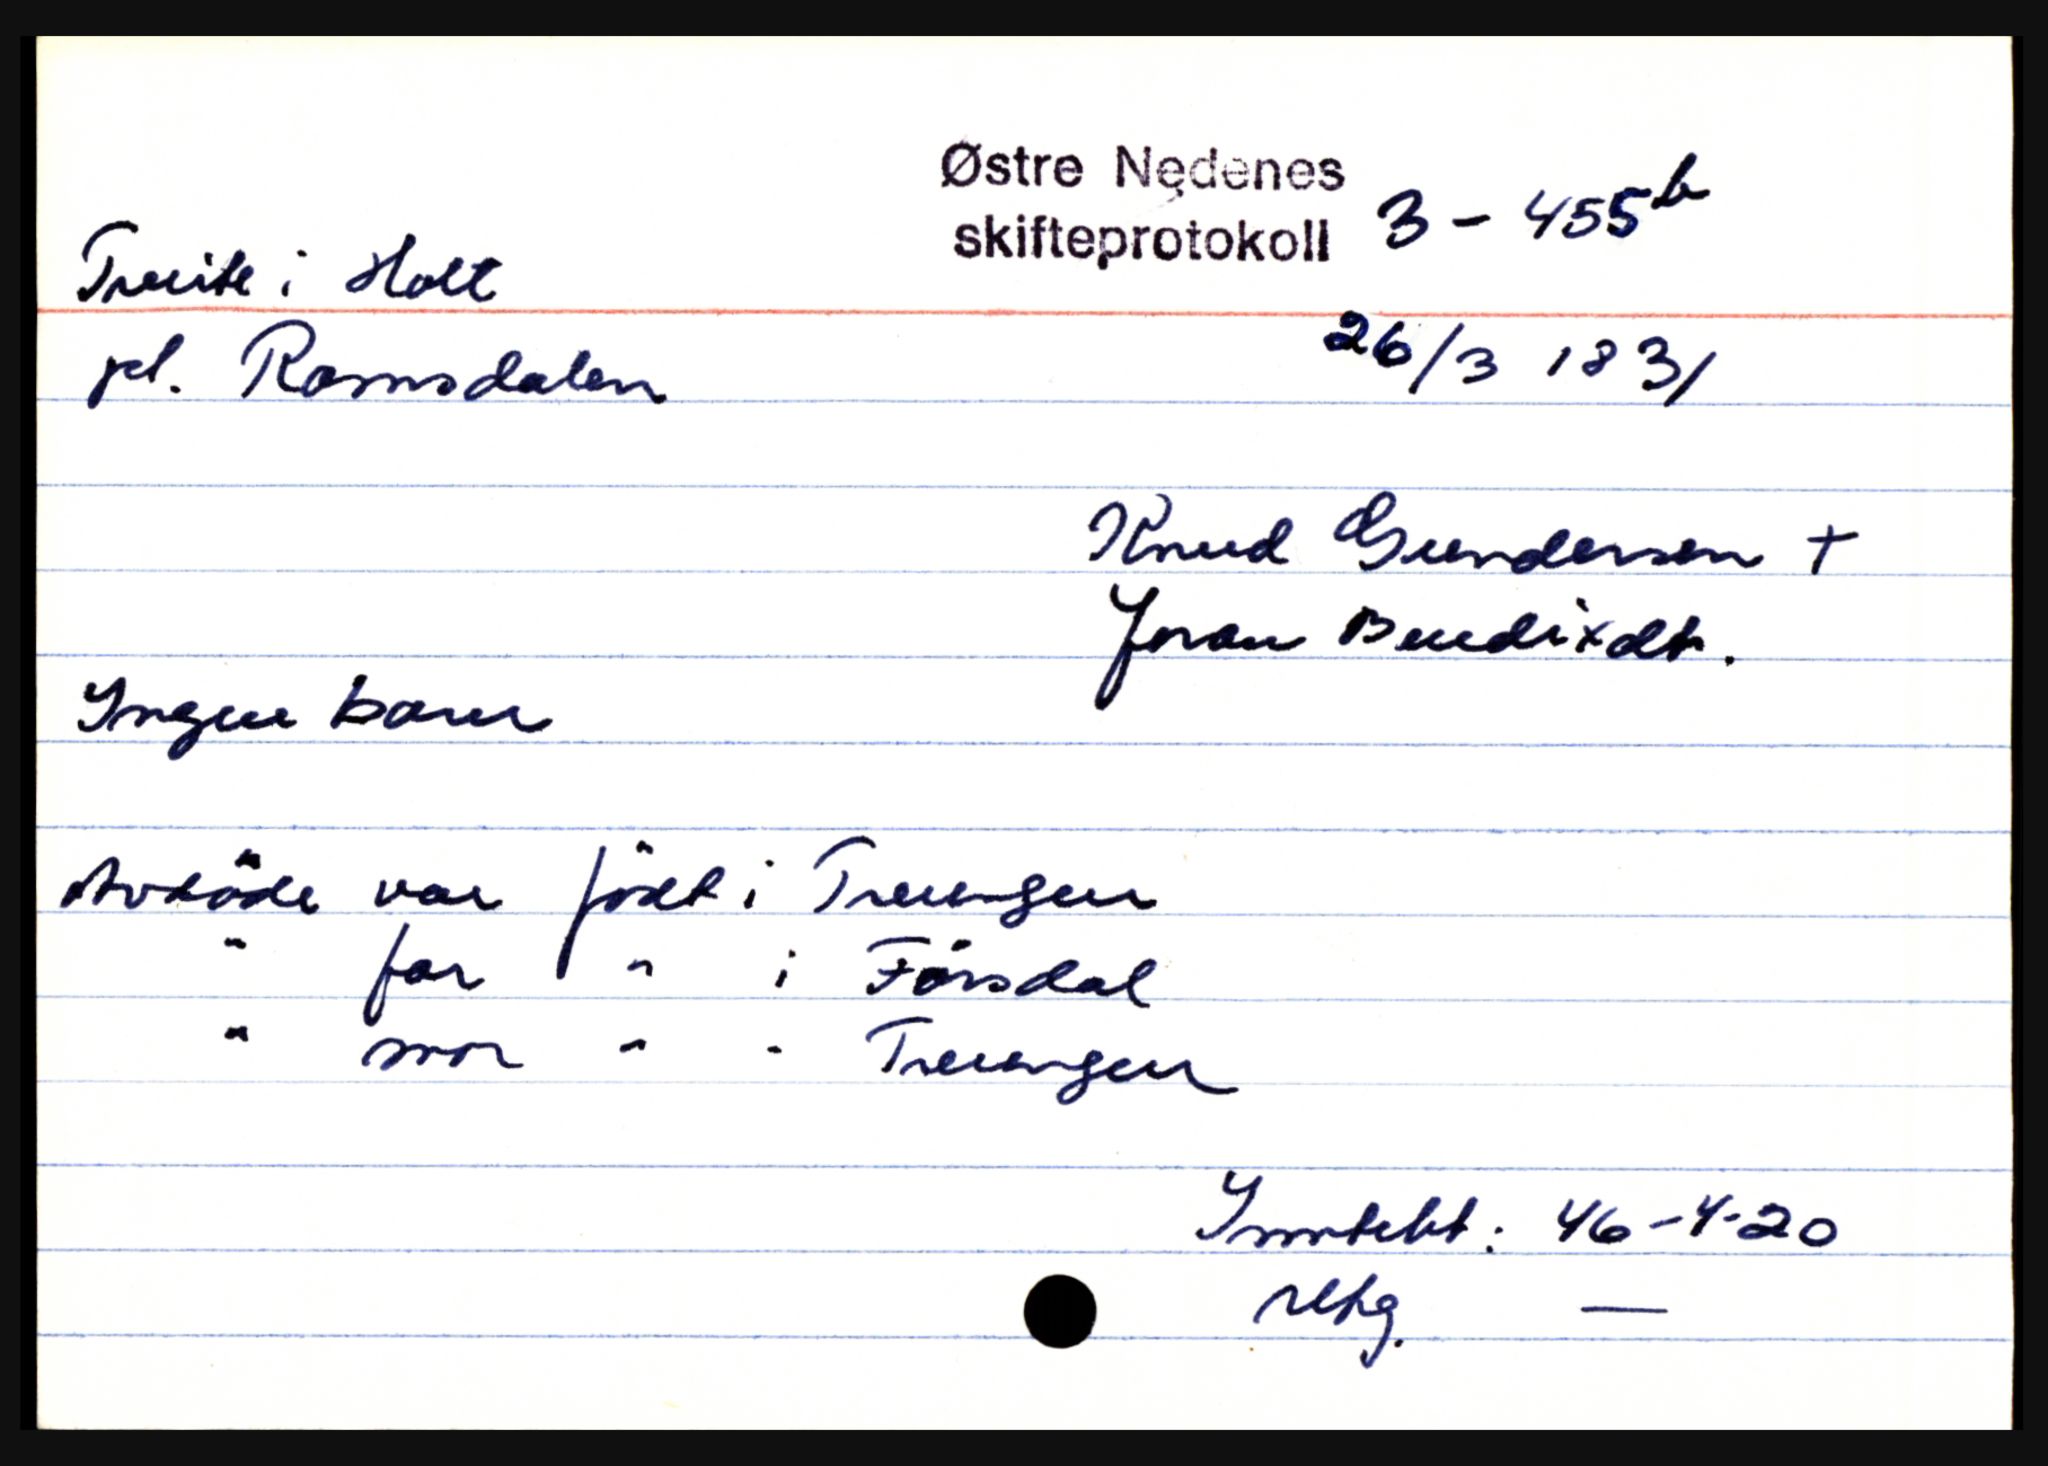 Østre Nedenes
skifteprotokoll 3 - 455b
Tveite i Holt
pl. Ramsdalen
26/3 1831
Knud Gundersen +
Joran Bendixdt.
Ingen barn
Avdöde var födt i Treungen
" far " i Försdal
" mor " - Treungen
Inntekt: 46-4-20
nttg. —